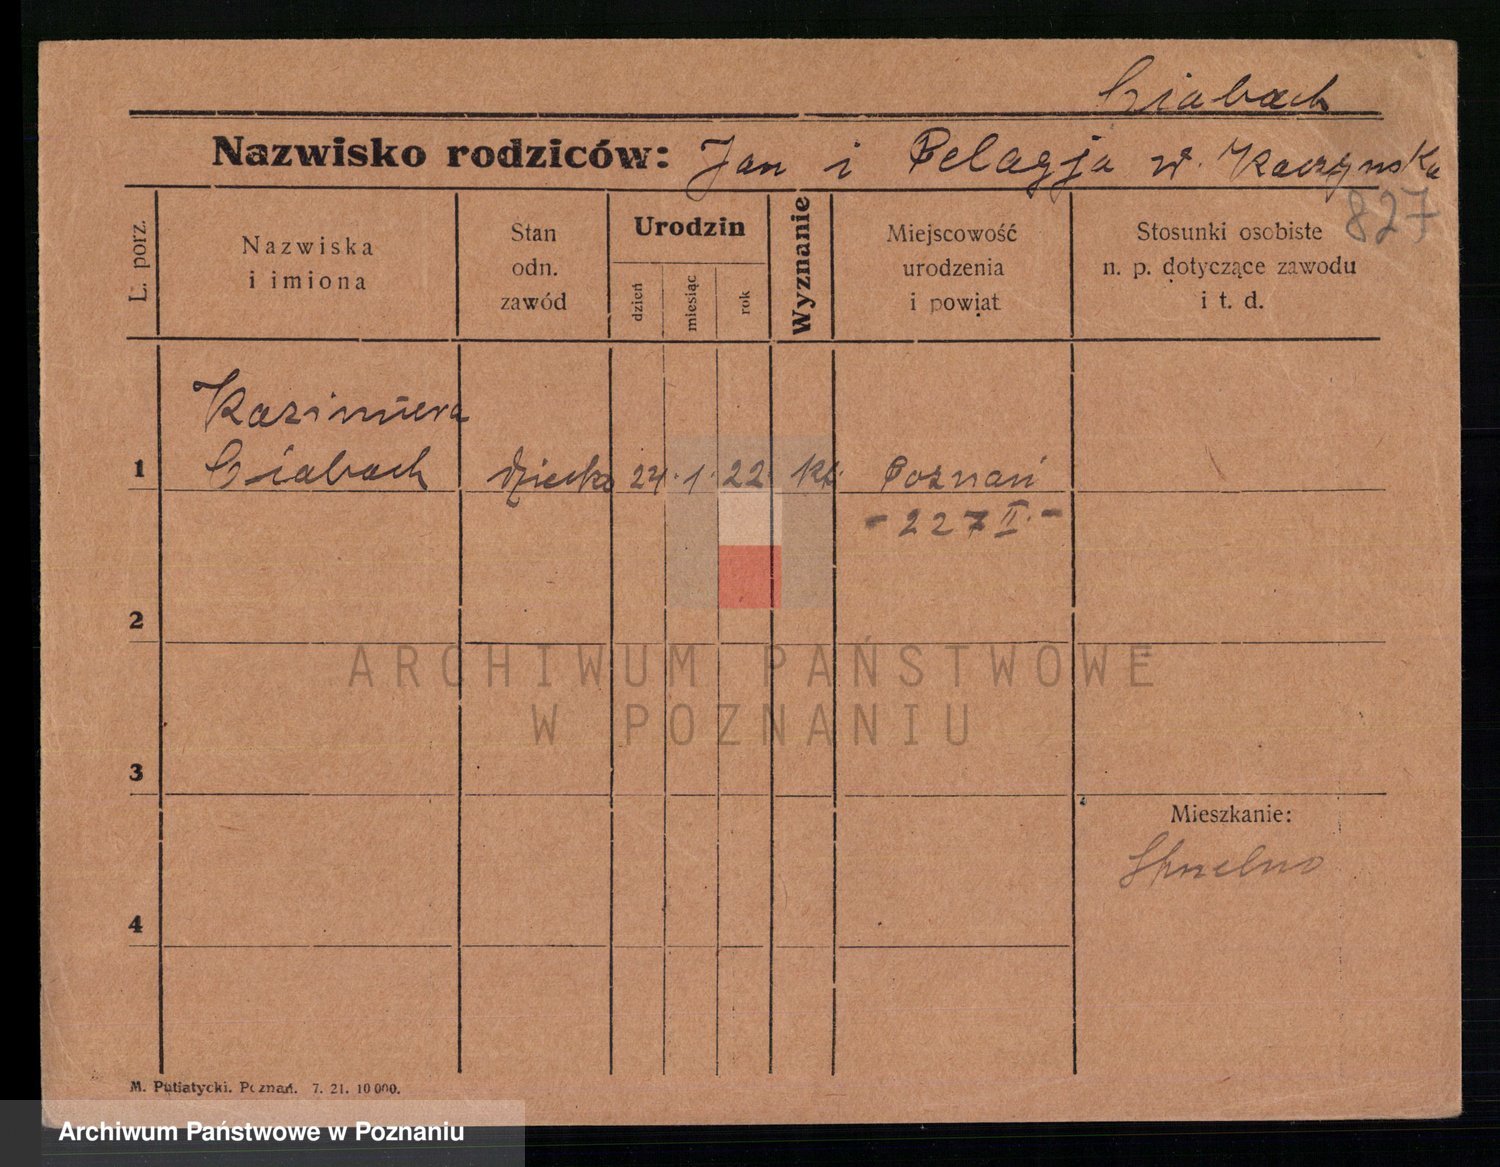 Ciabach
Nazwisko rodziców: Jan i Pelagja w. Kaczynska
827
L. porz.
Nazwiska
i imiona
Stan
odn.
zawód
Urodzin
dzień
miesiąc
rok
Wyznanie
Miejscowość
urodzenia
i powiat
Stosunki osobiste
n. p. dotyczące zawodu
i t. d.
Kazimiera
1 Ciabach dziecko 24. 1. 22. kt. Poznań
- 227 II. -
2
ARCHIWUM PAŃSTWOWE
W POZNANIU
3
Mieszkanie:
4
M. Putiatycki. Poznań. 7. 21. 10 000.
Archiwum Państwowe w Poznaniu